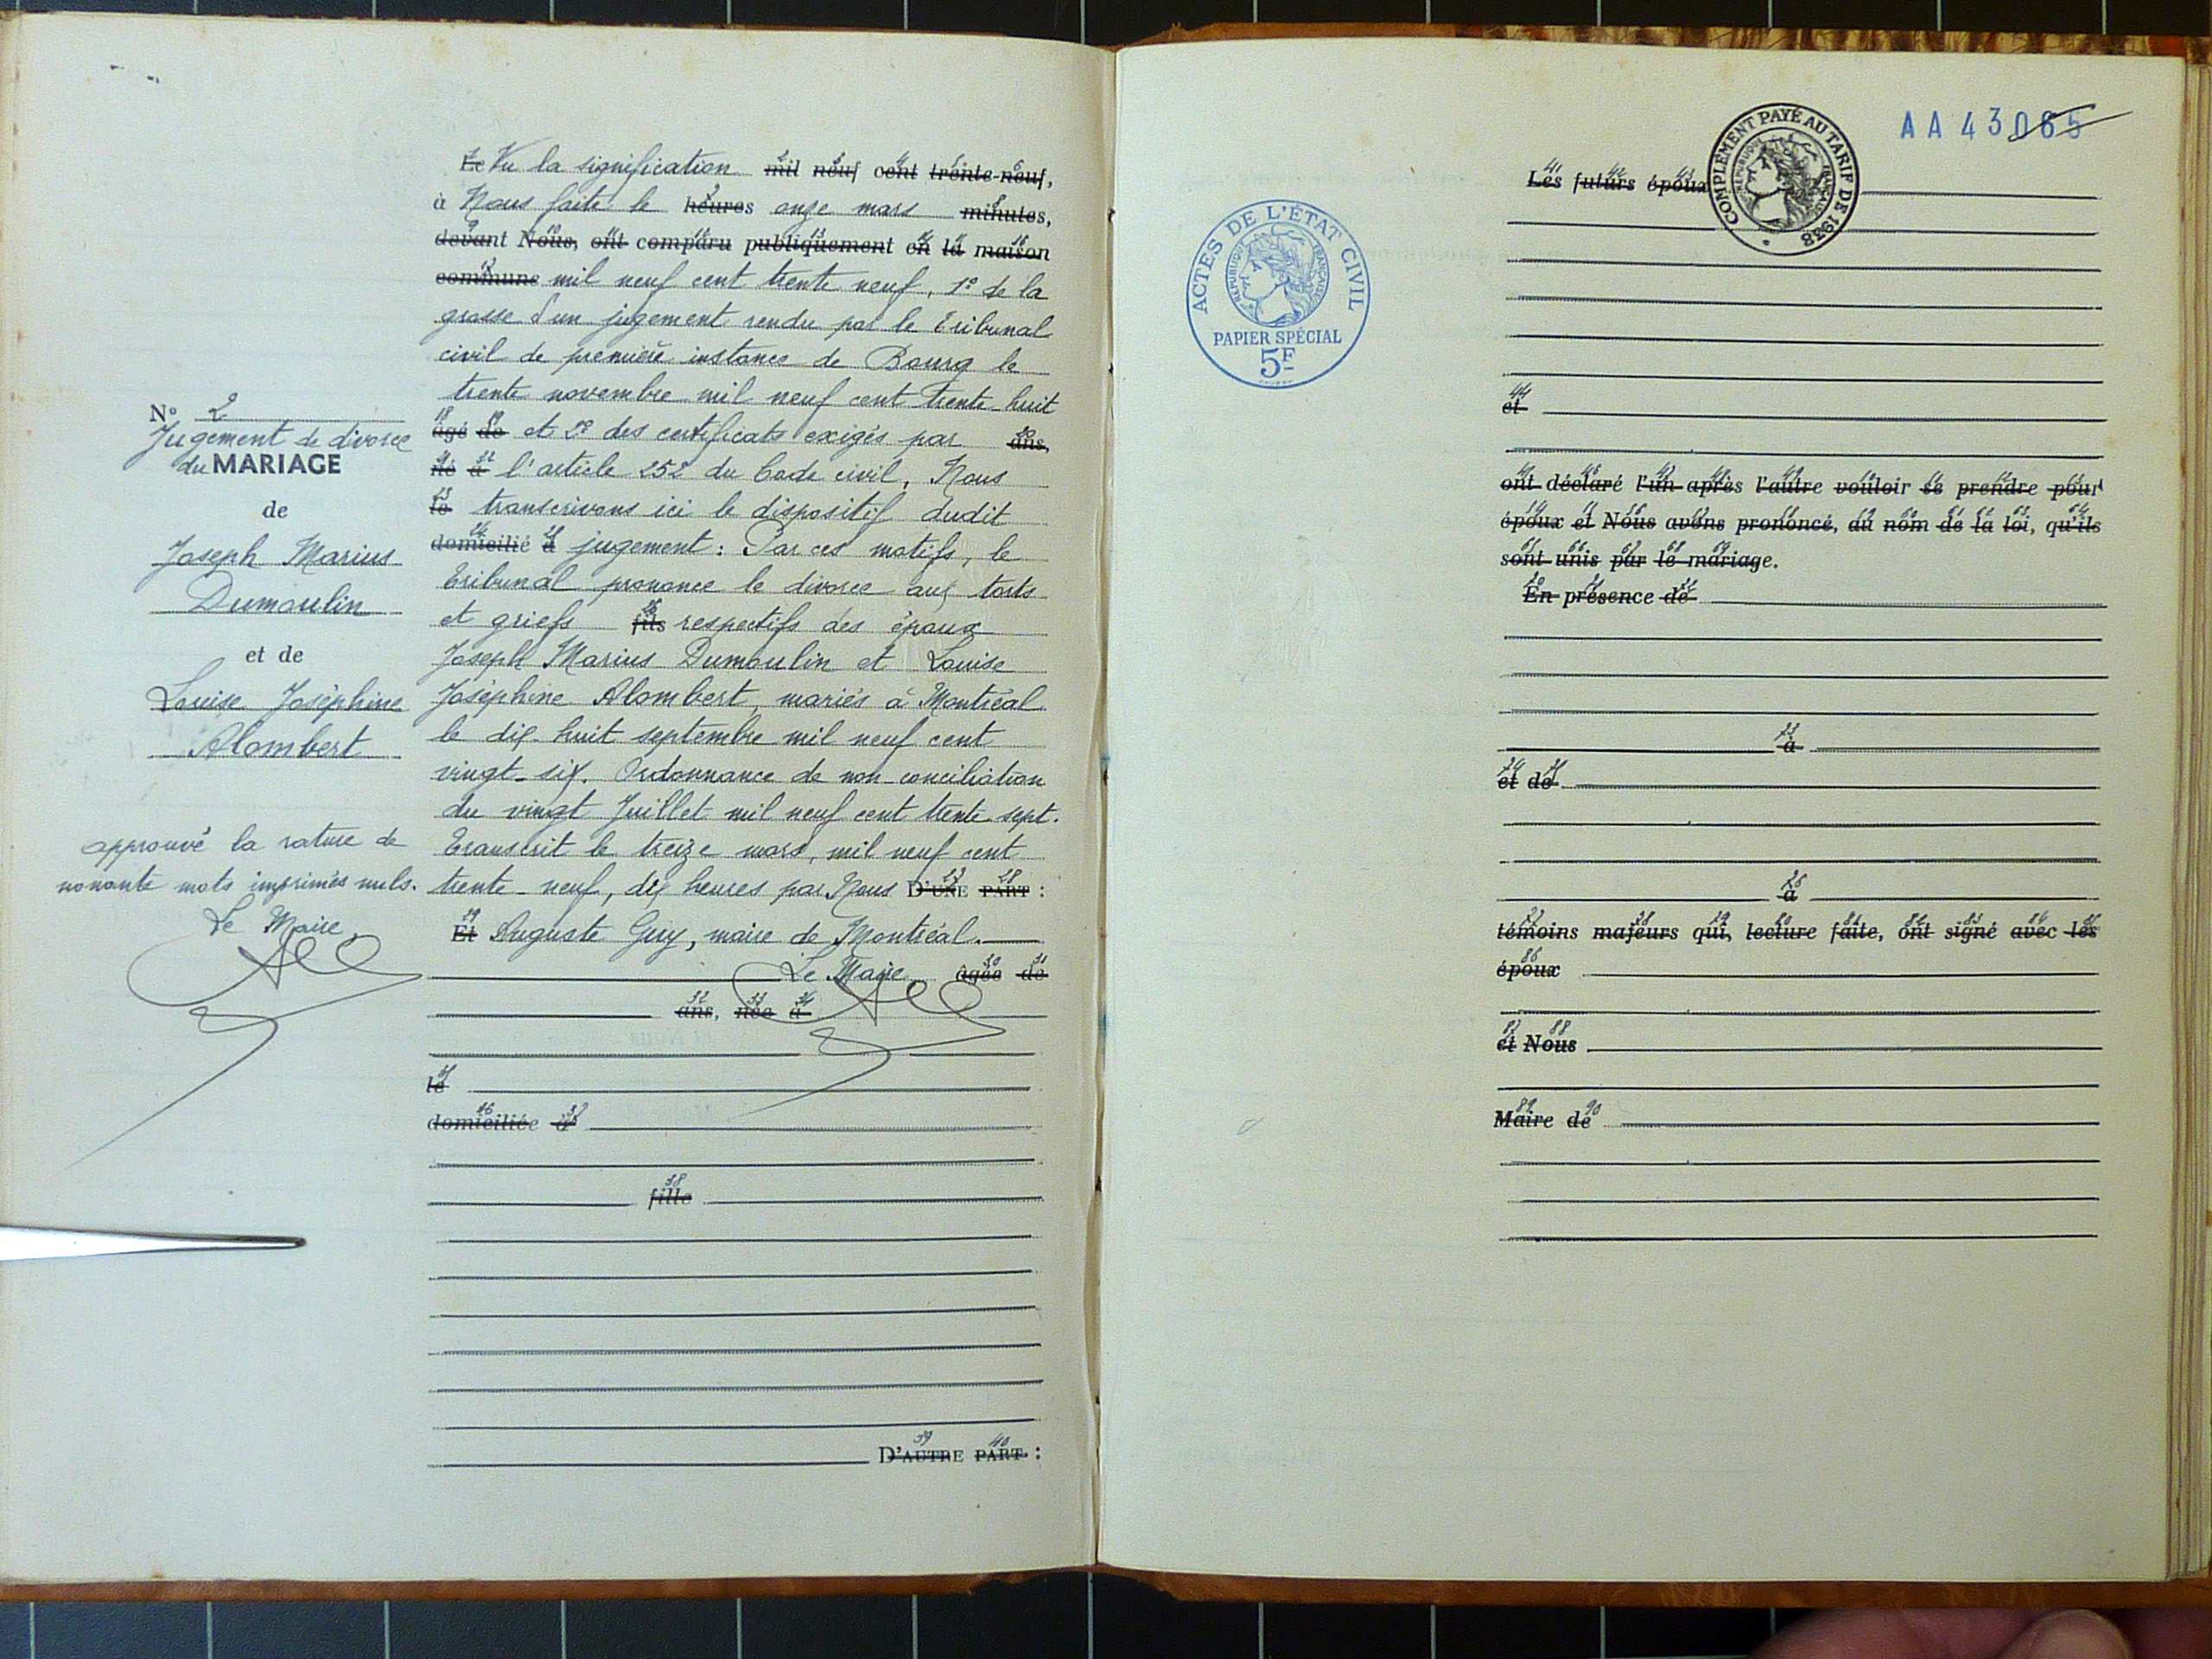 N° 2
Jugement de divorce
du MARIAGE
de
Joseph Marius
Dumoulin
et de
Louise Joséphine
Alombert
approuvé la rature de
nonante mots imprimés nuls.
Le Maire,
Le Vu la signification mil neuf cent trente-neuf,
à Nous faite le heures onze mars minutes,
devant Nous, ont comparu publiquement en la maison
commune mil neuf cent trente neuf, 1° de la
grosse d'un jugement rendu par le Tribunal
civil de première instance de Bourg le
trente novembre mil neuf cent trente-huit
âgé de et 2° des certificats exigés par ans,
né à l'article 252 du Code civil, Nous
le transcrivons ici le dispositif dudit
domicilié à jugement : Par ces motifs, le
Tribunal prononce le divorce aux torts
et griefs fils respectifs des époux
Joseph Marius Dumoulin et Louise
Joséphine Alombert, mariés à Montréal
le dix-huit septembre mil neuf cent
vingt-six. Ordonnance de non conciliation
du vingt Juillet mil neuf cent trente-sept.
Transcrit le treize mars, mil neuf cent
trente-neuf, dix heures par Nous D'UNE PART :
Et Auguste Guy, maire de Montréal.
Le Maire, âgée de
ans, née à
le
domiciliée à
fille
D'AUTRE PART :
AA 43065
COMPLÉMENT PAYÉ AU TARIF DE 1938
RÉPUBLIQUE FRANÇAISE
ACTES DE L'ÉTAT CIVIL
RÉPUBLIQUE FRANÇAISE
PAPIER SPÉCIAL
5F
Les futurs époux
et
ont déclaré l'un après l'autre vouloir se prendre pour
époux et Nous avons prononcé, au nom de la loi, qu'ils
sont unis par le mariage.
En présence de
à
et de
à
témoins majeurs qui, lecture faite, ont signé avec les
époux
et Nous
Maire de